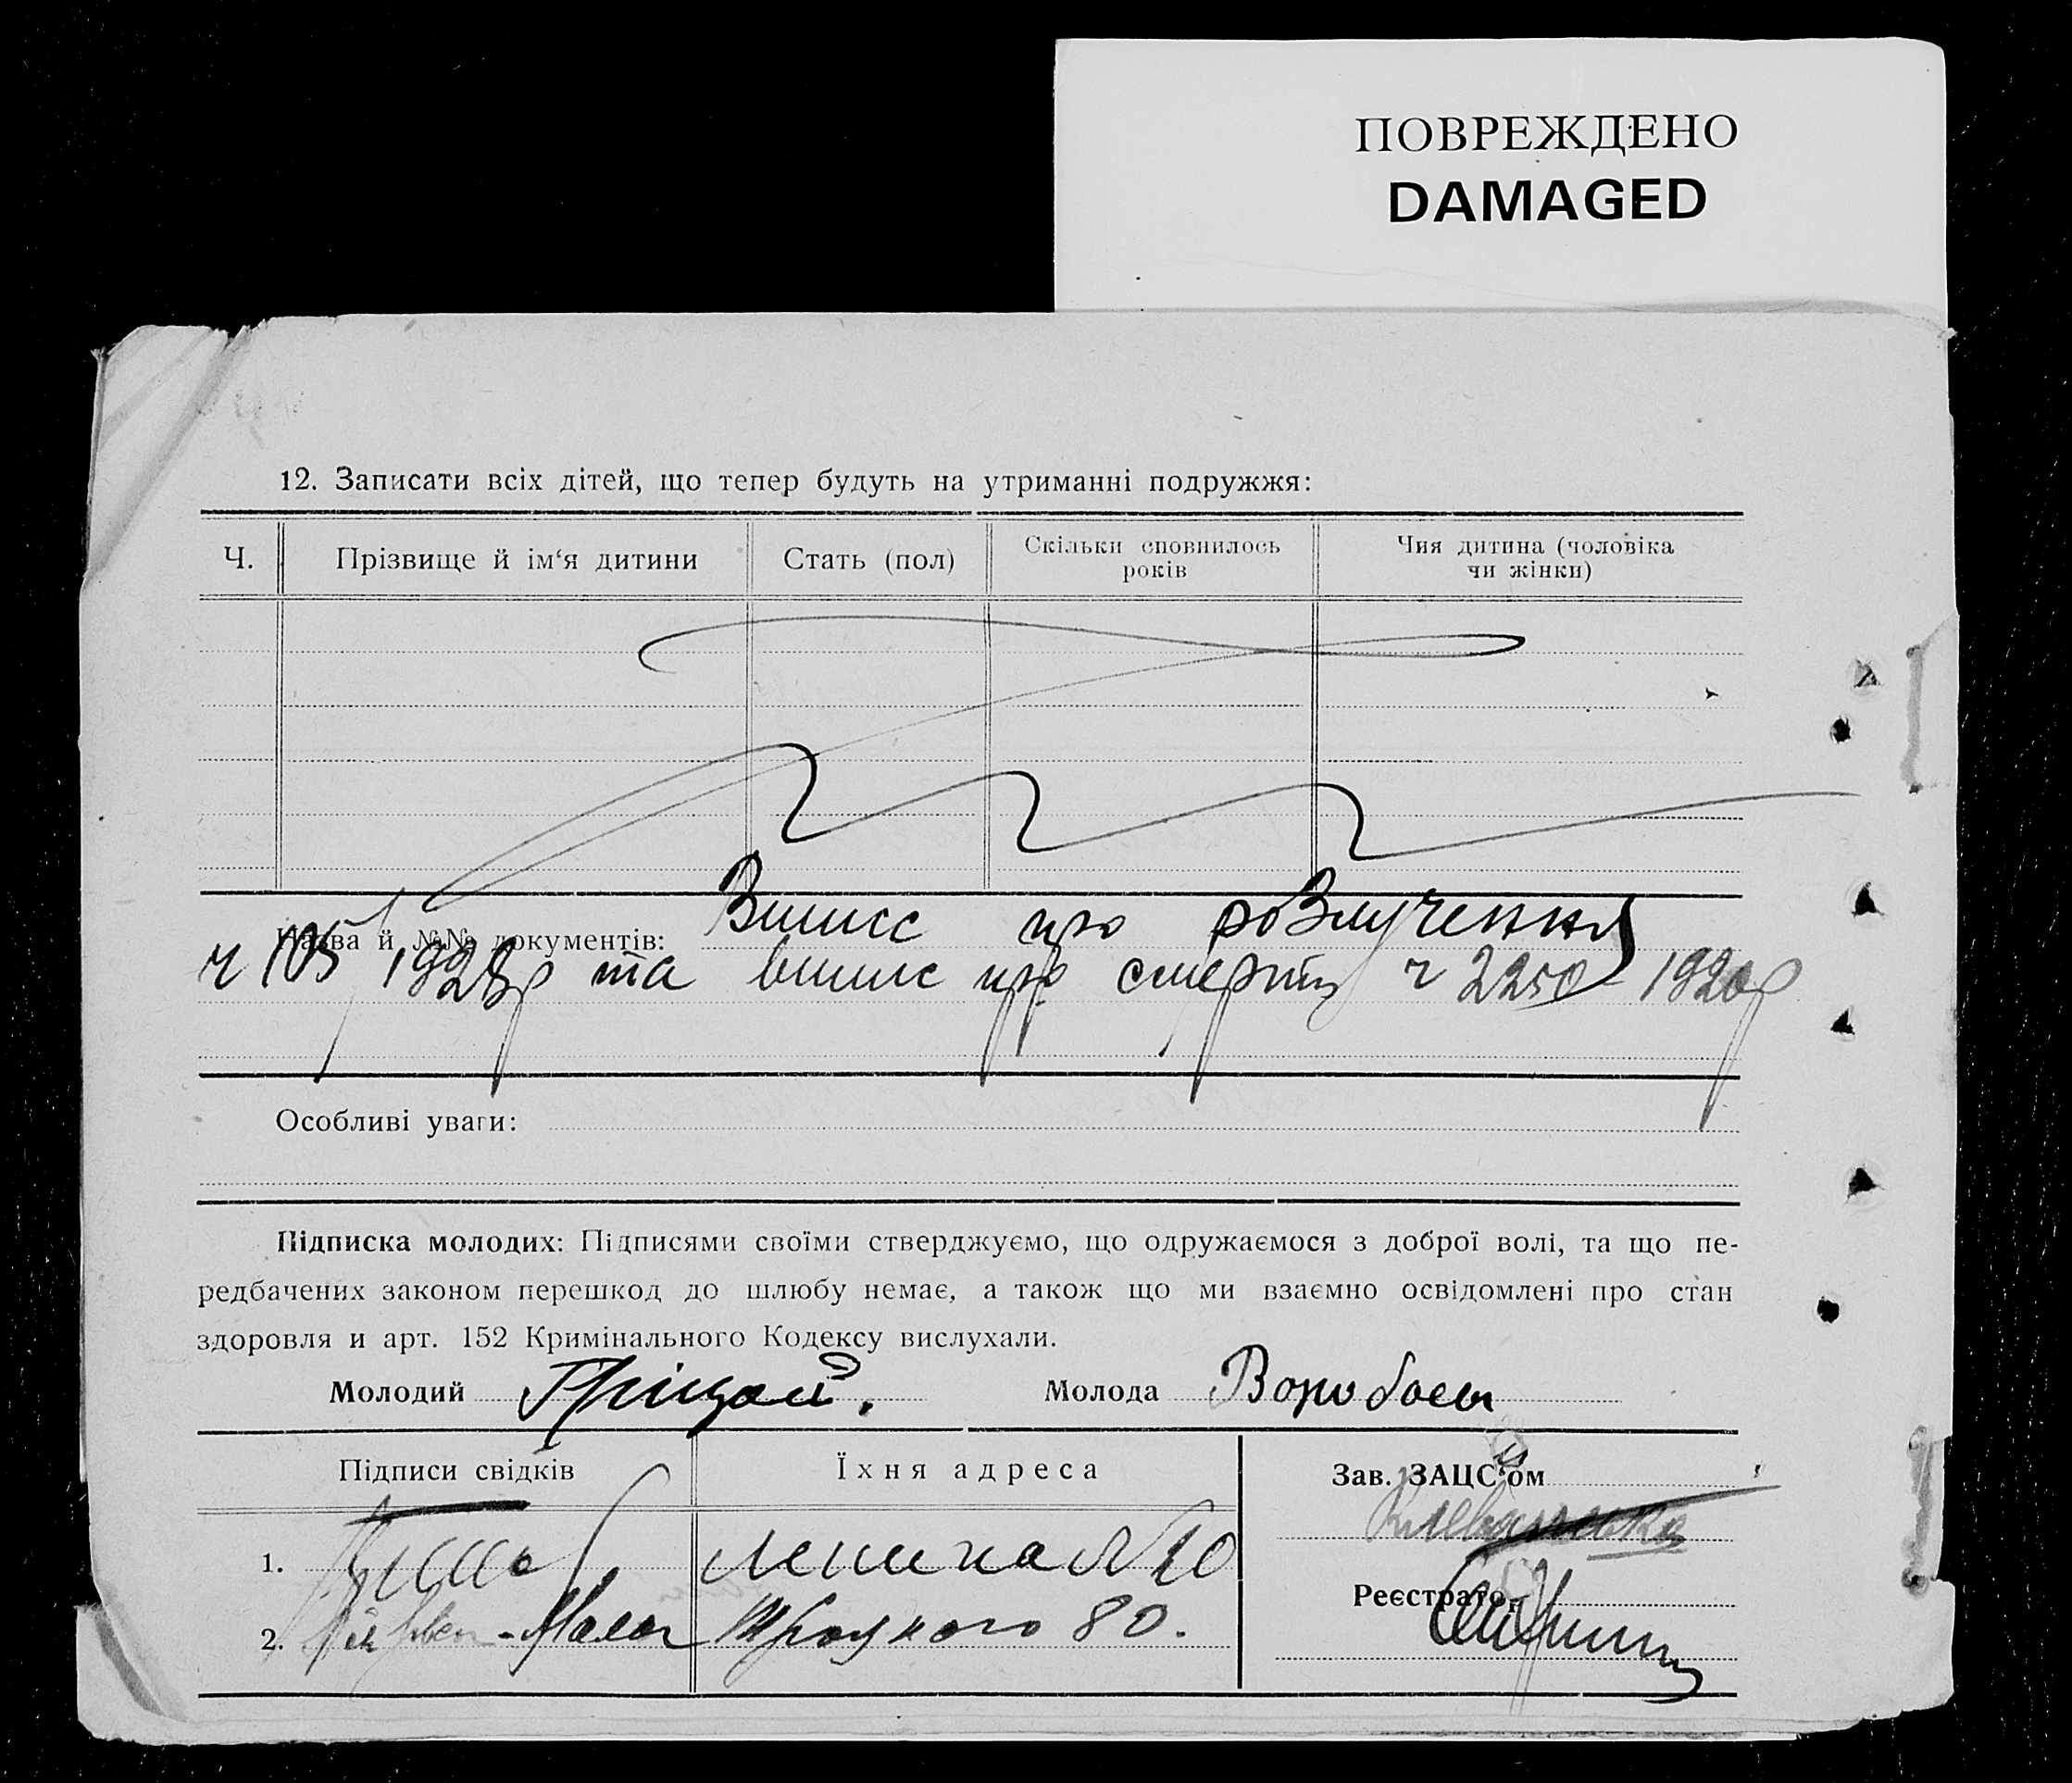 ПОВРЕЖДЕНО
DAMAGED
12. Записати всіх дітей, що тепер будуть на утриманні подружжя:
Ч. Прізвище й ім‘я дитини Стать (пол) Скільки сповнилось років Чия дитина (чоловіка чи жінки)
Назва й №№ документів: Випис про розлучення
ч 105 1928р та випис про смерть ч 2250 1920р
Особливі уваги:
Підписка молодих: Підписями своїми стверджуємо, що одружаємося з доброї волі, та що пе-
редбачених законом перешкод до шлюбу немає, а також що ми взаємно освідомлені про стан
здоровля и арт. 152 Кримінального Кодексу вислухали.
Молодий Грицай. Молода
Підписи свідків Їхня адреса Зав. ЗАЦС'ом
1. Ленина №10
Реєстратор
2. Троцкого 80.